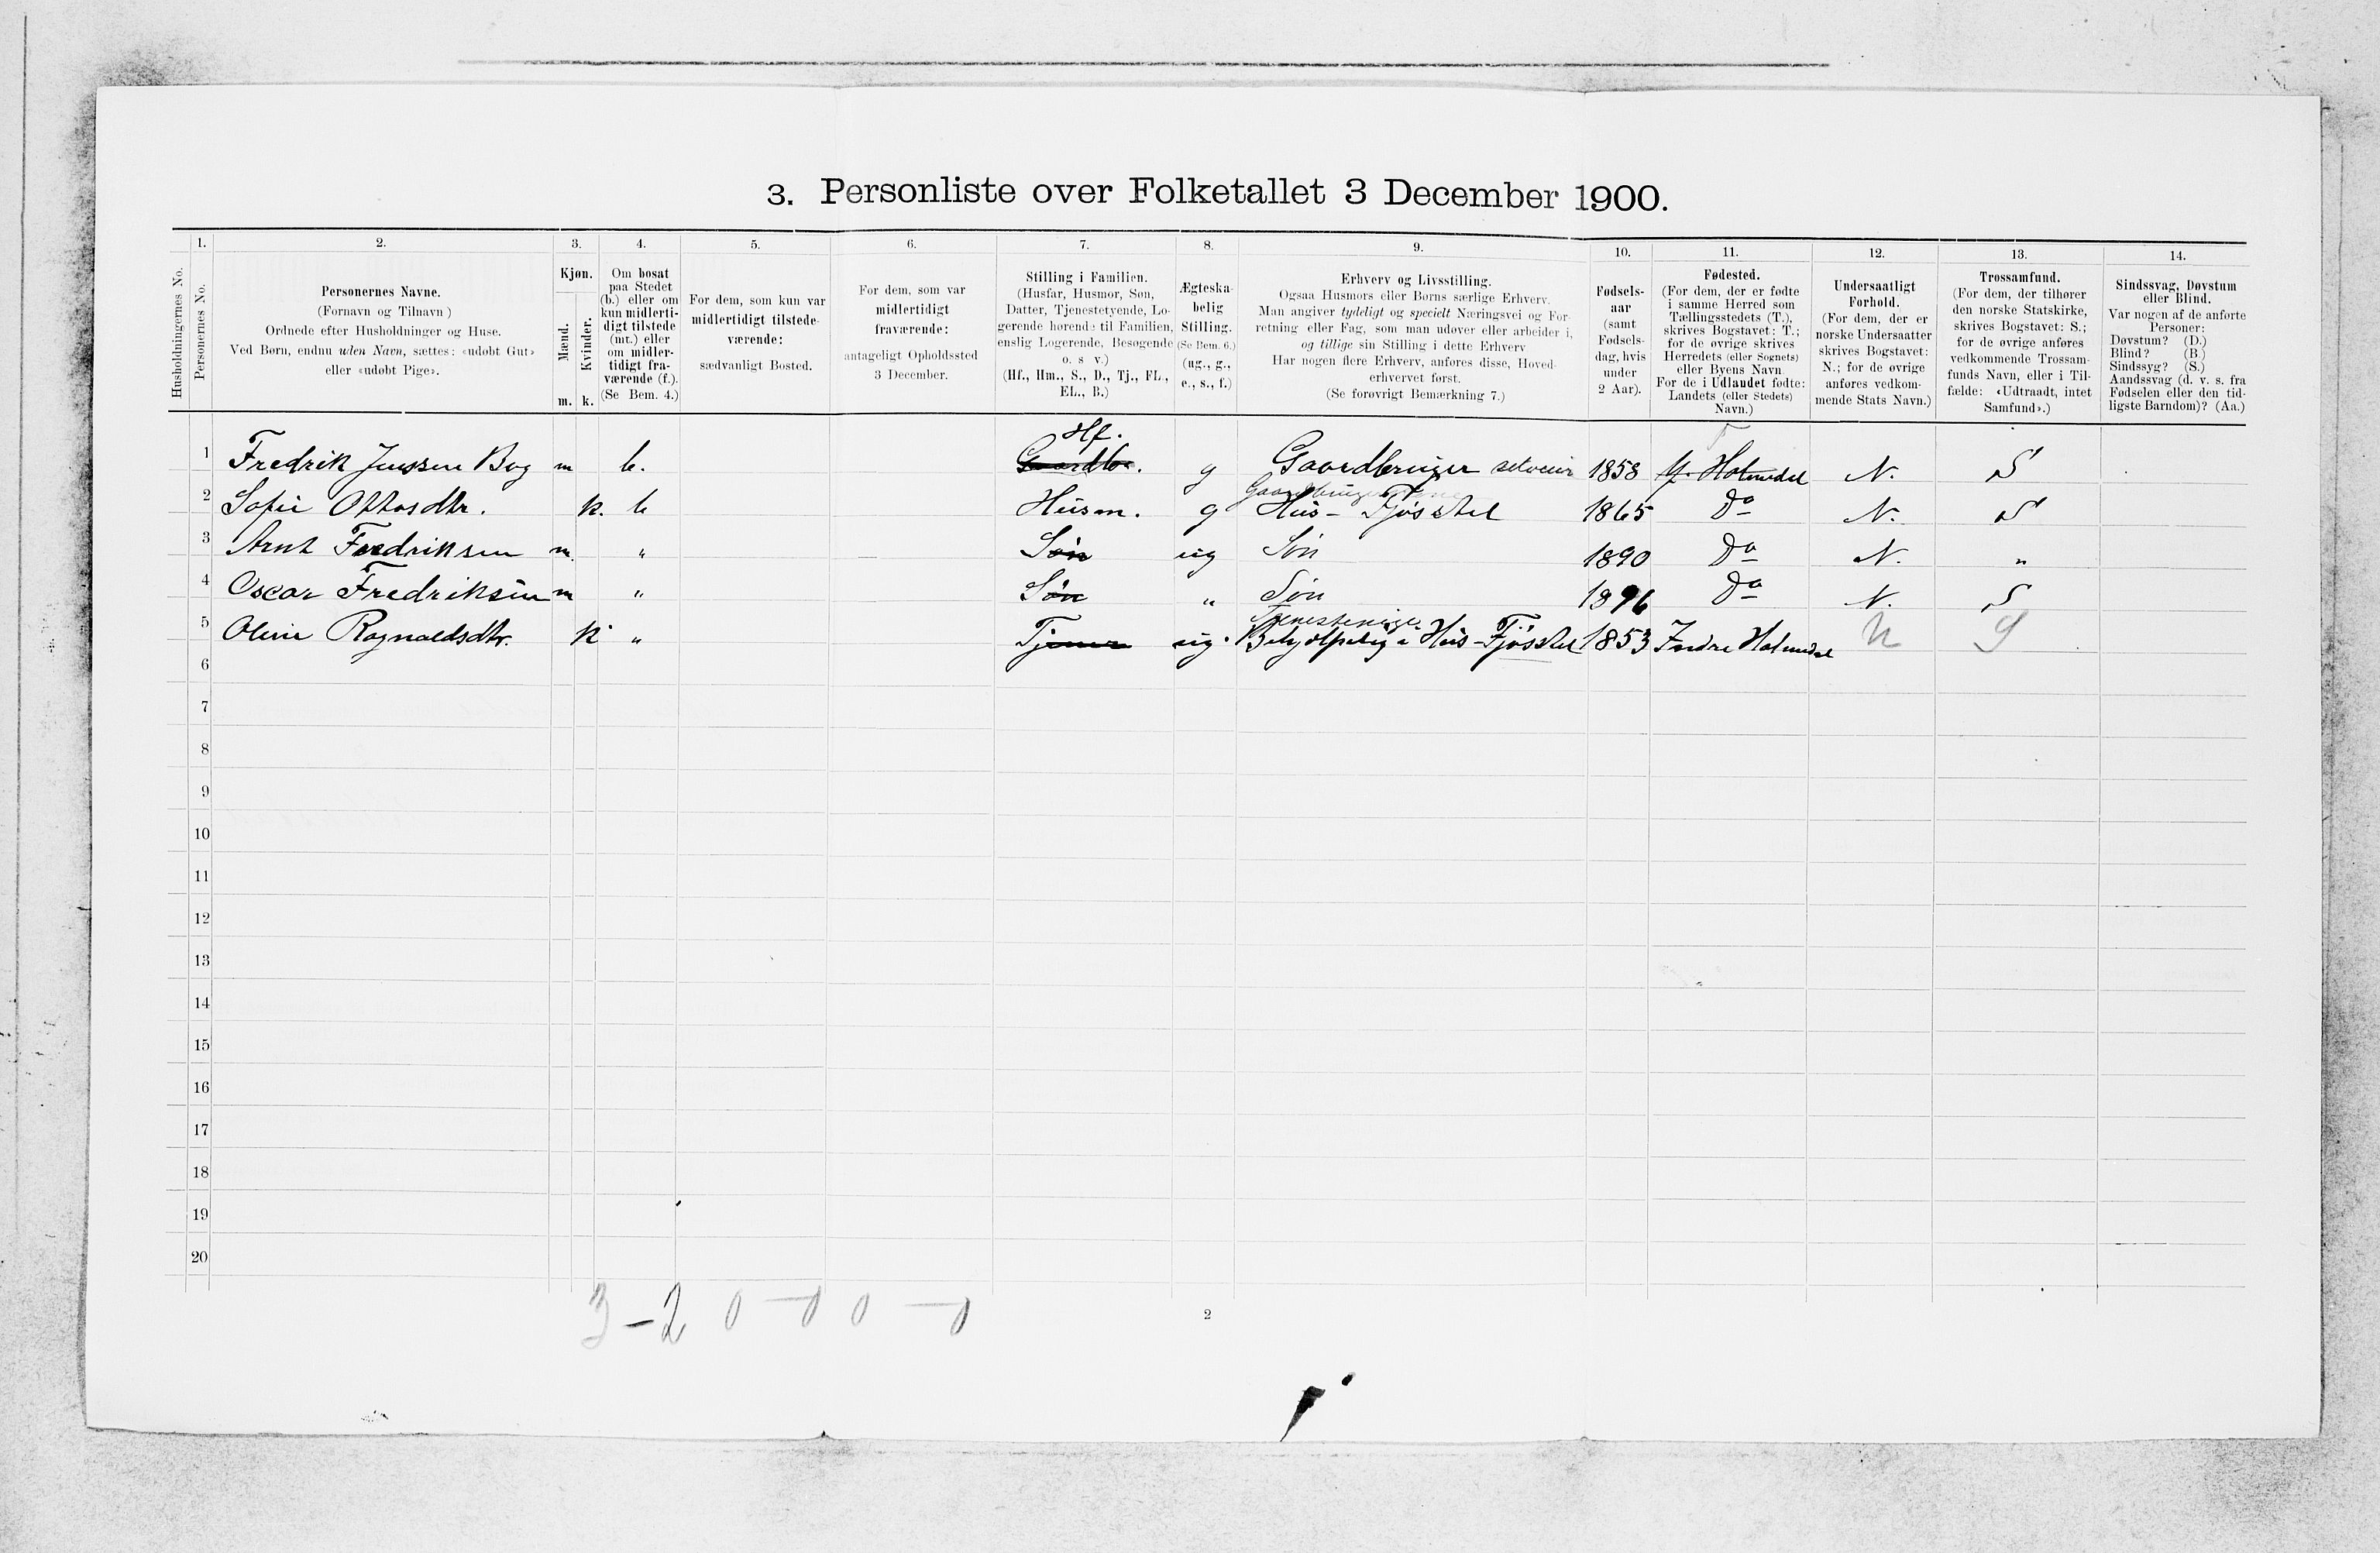 3. Personliste over Folketallet 3 December 1900.
1. 2. 3. 4. 5. 6. 7. 8. 9. 10. 11. 12. 13. 14.
Husholdningernes No.
Personernes No.
Personernes Navne.
(Fornavn og Tilnavn )
Ordnede efter Husholdninger og Huse.
Ved Børn, endnu uden Navn, sættes: «udøbt Gut»
eller «udøbt Pige».
Kjøn.
Mænd.
Kvinder.
m. k.
Om bosat
paa Stedet
(b.) eller om
kun midlerti-
digt tilstede
(mt.) eller
om midler-
tidigt fra-
værende (f.).
(Se Bem. 4.)
For dem, som kun var
midlertidigt tilstede-
værende:
sædvanligt Bosted.
For dem, som var
midlertidigt
fraværende:
antageligt Opholdssted
3 December.
Stilling i Familien.
(Husfar, Husmor, Søn,
Datter, Tjenestetyende, Lo-
gerende hørende til Familien,
enslig Logerende, Besøgende
o. s v.)
(Hf., Hm., S., D., Tj., FL.,
EL., B.)
Ægteska-
belig
Stilling.
(Se Bem. 6.)
(ug., g.,
e., s., f.)
Erhverv og Livsstilling.
Ogsaa Husmors eller Børns særlige Erhverv.
Man angiver tydeligt og specielt Næringsvei og For-
retning eller Fag, som man udøver eller arbeider i,
og tillige sin Stilling i dette Erhverv
Har nogen flere Erhverv, anføres disse, Hoved-
erhvervet først.
(Se forøvrigt Bemærkning 7.)
Fødsels-
aar
(samt
Fødsels-
dag, hvis
under
2 Aar).
Fødested.
(For dem, der er fødte
i samme Herred som
Tællingsstedets (T.),
skrives Bogstavet: T.;
for de øvrige skrives
Herredets (eller Sognets)
eller Byens Navn
For de i Udlandet fødte:
Landets (eller Stedets)
Navn.)
Undersaatligt
Forhold.
(For dem, der er
norske Undersaatter
skrives Bogstavet:
N.; for de øvrige
anføres vedkom-
mende Stats Navn.)
Trossamfund.
(For dem, der tilhører
den norske Statskirke,
skrives Bogstavet: S.;
for de øvrige anføres
vedkommende Trossam-
funds Navn, eller i Til-
fælde: «Udtraadt, intet
Samfund».)
Sindssvag, Døvstum
eller Blind.
Var nogen af de anførte
Personer:
Døvstum? (D.)
Blind? (B.)
Sindssyg? (S.)
Aandssvag (d. v. s. fra
Fødselen eller den tid-
ligste Barndom)? (Aa.)
Hf.
1 Fredrik Jenssen Bog m b. Gaardbr. g Gaardbruger selveier 1858 Y. Holmedal N. S
2 Sofie Ottosdtr. k. b Husm. g Hus- Fjøsstel 1865 Do N. S
3 Arnt Fredriksen m. " Søn ug Søn 1890 Do N. "
4 Oscar Fredriksen m " Søn " Søn 1896 Do N. S
Tjenestepige
5 Oline Ragnvaldsdtr. k " Tjener ug. Behjælpelig i Hus-Fjøsstel 1853 Indre Holmedal N S
6
7
8
9
10
11
12
13
14
15
16
17
18
19
20
3-2 0-0 0-0
2